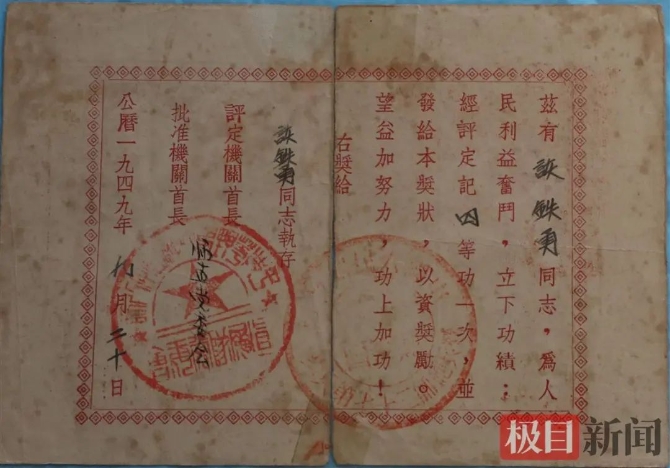 茲有 鉄勇同志，為人
民利益奮鬥，立下功績；
經評定記四等功一次，並
發給本獎狀，以資獎勵。
望益加努力，功上加功！
右獎給
鉄勇同志執存
評定機關首長
批准機關首長
公曆一九四九年 月二十日
极目新闻